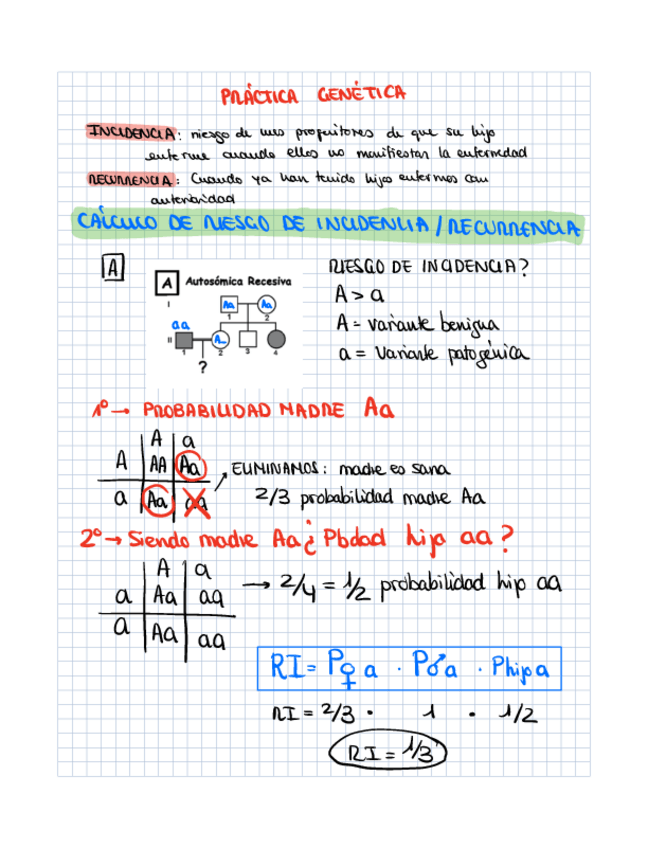 PRÁCTICA GENÉTICA
INCIDENCIA: riesgo de unos progenitores de que su hijo
enferme cuando ellos no manifiestan la enfermedad
RECURRENCIA: Cuando ya han tenido hijos enfermos con
anterioridad
CÁLCULO DE RIESGO DE INCIDENCIA / RECURRENCIA
A
A Autosómica Recesiva
I
Aa Aa
1 2
aa
II A_
1 2 3 4
?
RIESGO DE INCIDENCIA?
A > a
A = variante benigna
a = Variante patogénica
1º → PROBABILIDAD MADRE Aa
A a
A AA Aa
a Aa aa
ELIMINAMOS: madre es sana
2/3 probabilidad madre Aa
2º → Siendo madre Aa ¿ Pbdad hijo aa?
A a
a Aa aa
a Aa aa
→ 2/4 = 1/2 probabilidad hijo aa
RI = P♀a · P♂a · Phijo a
RI = 2/3 · 1 · 1/2
RI = 1/3